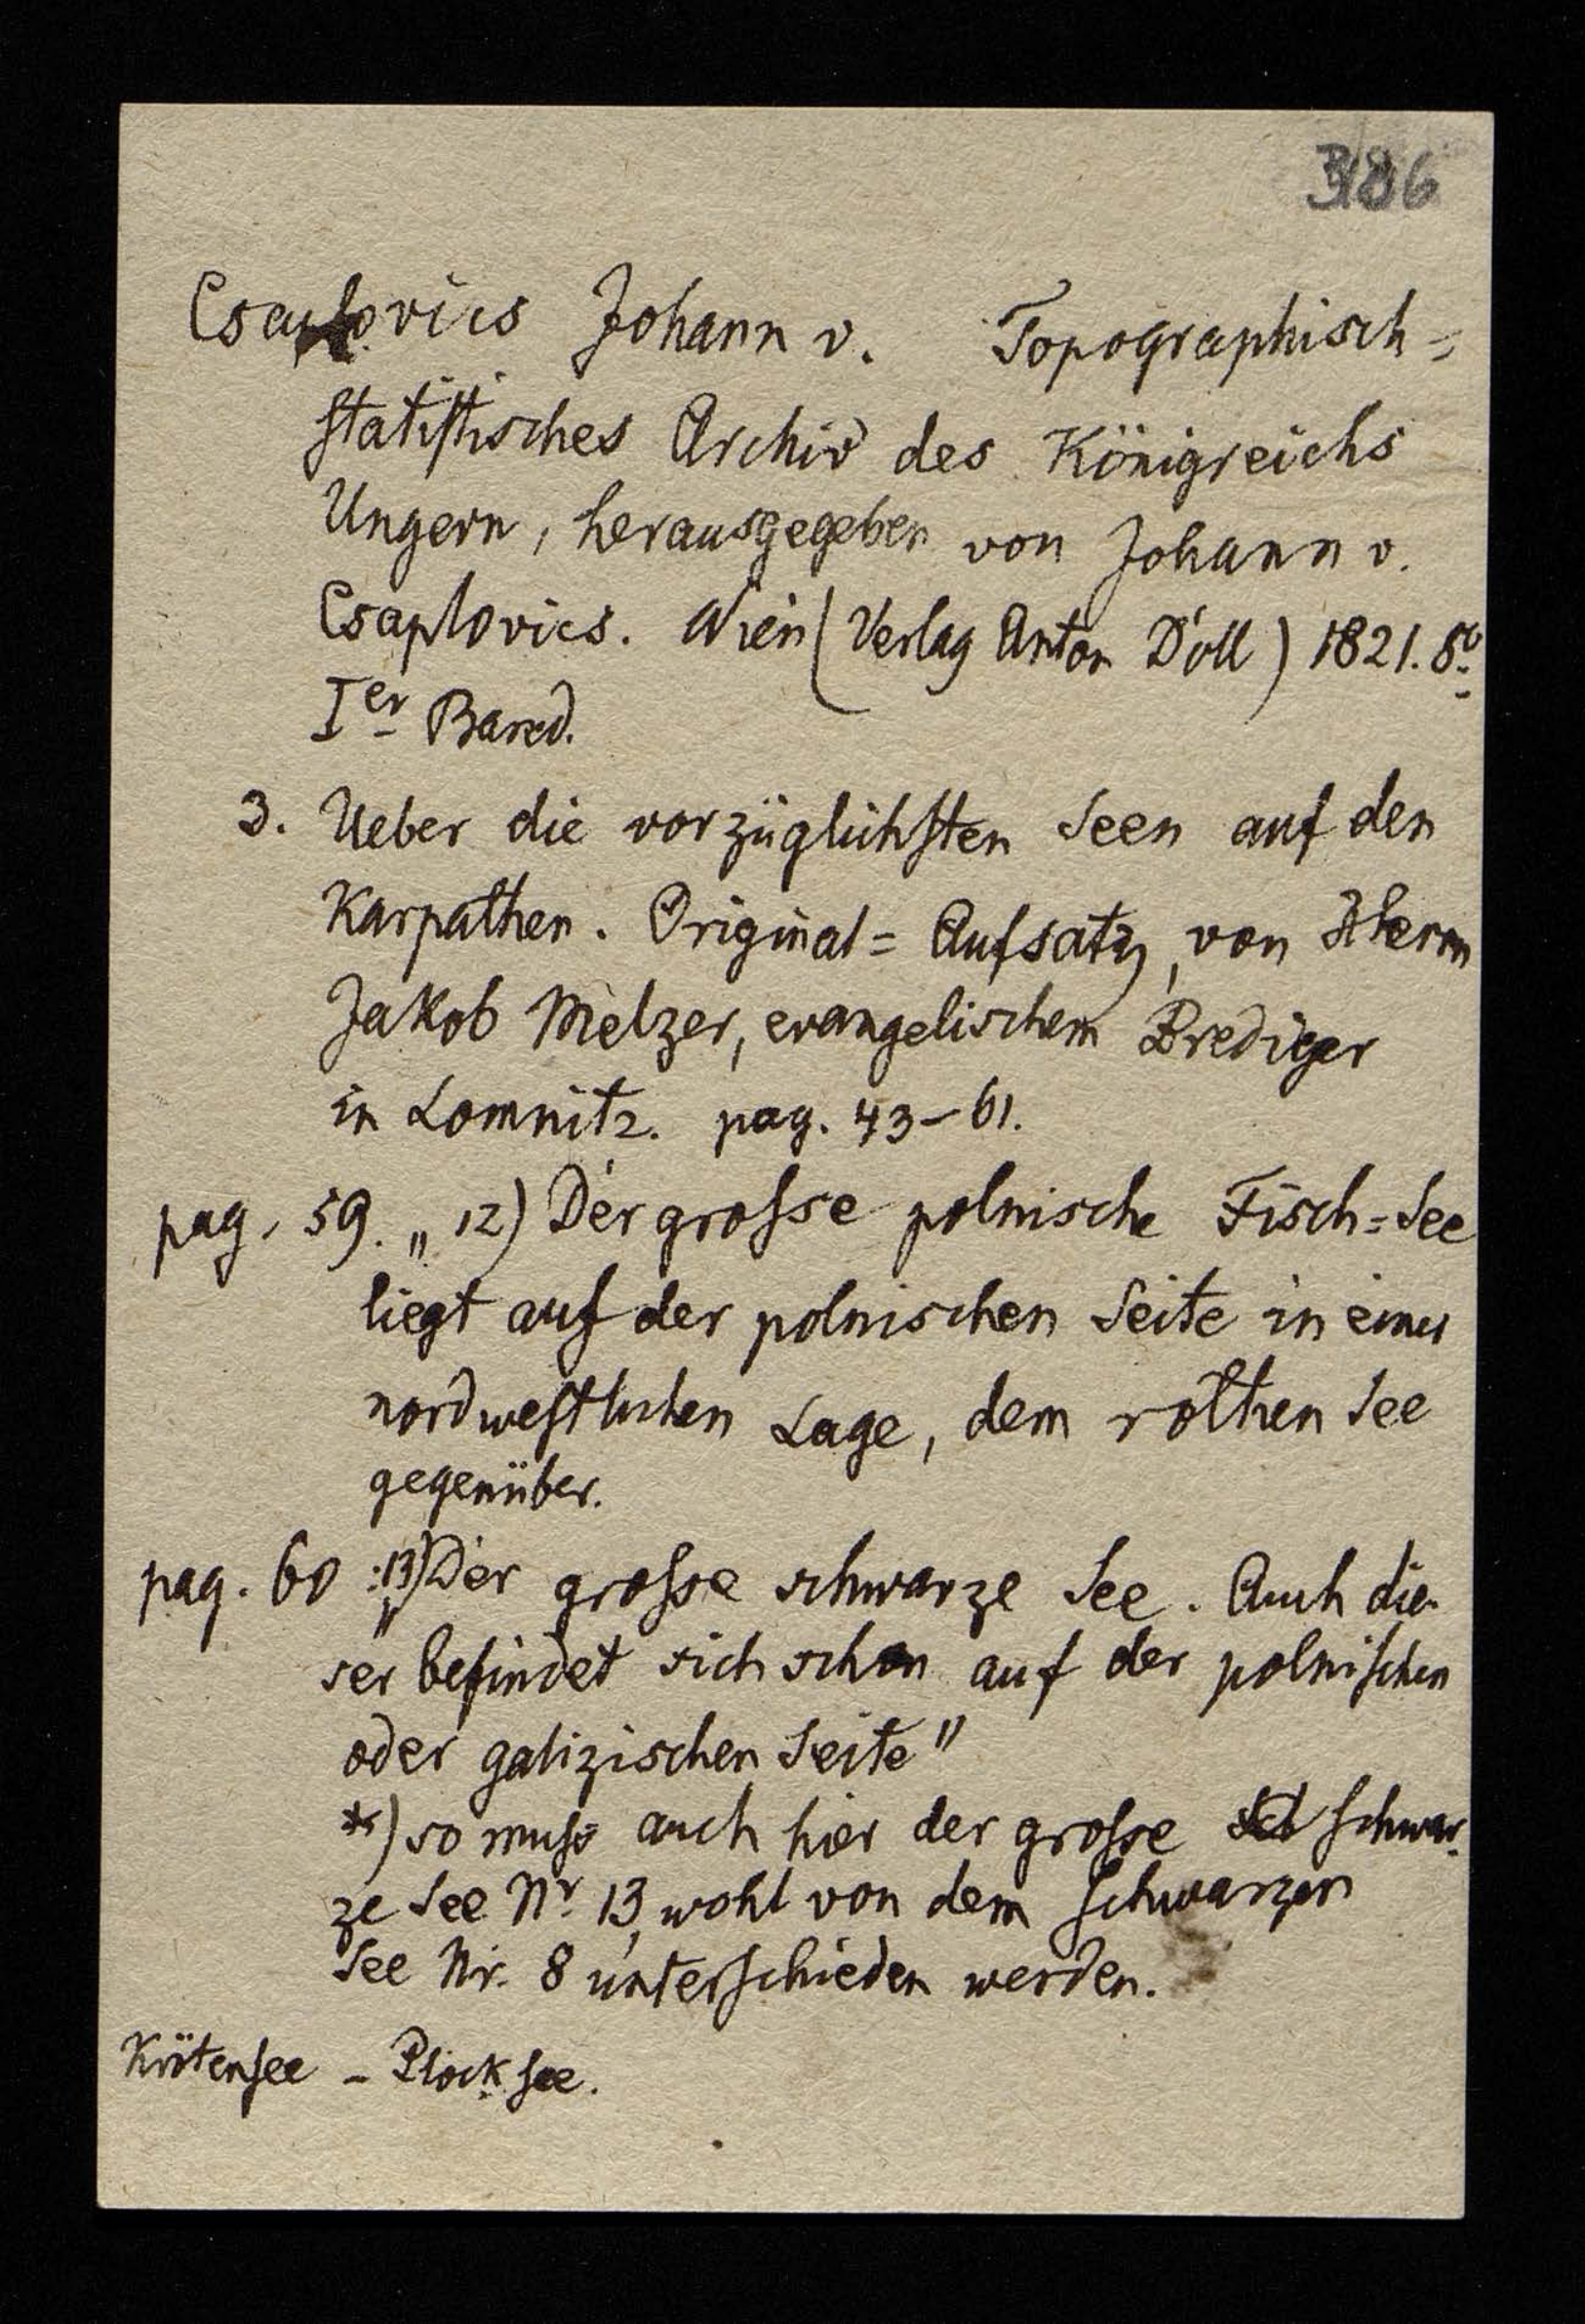 386
Csaplovics Johann v. Topographisch=
statistisches Archiv des Königreichs
Ungern, herausgegeben von Johann v.
Csaplovics. Wien (Verlag Anton Doll) 1821. 8o.
Ier Band.
3. Ueber die vorzüglichsten Seen auf den
Karpathen. Original=Aufsatz, von Herrn
Jakob Melzer, evangelischem Prediger
in Lomnitz. pag. 43-61.
pag. 59. „12) Der grosse polnische Fisch=See
liegt auf der polnischen Seite in einer
nordwestlichen Lage, dem rothen See
gegenüber.
pag. 60 : „13) Der grosse schwarze See. Auch die-
ser befindet sich schon auf der polnischen
oder galizischen Seite"
*) so muss auch hier der grosse schwar-
ze See Nr 13, wohl von dem schwarzen
See Nr. 8 unterschieden werden.
Krötensee - Plocksee.